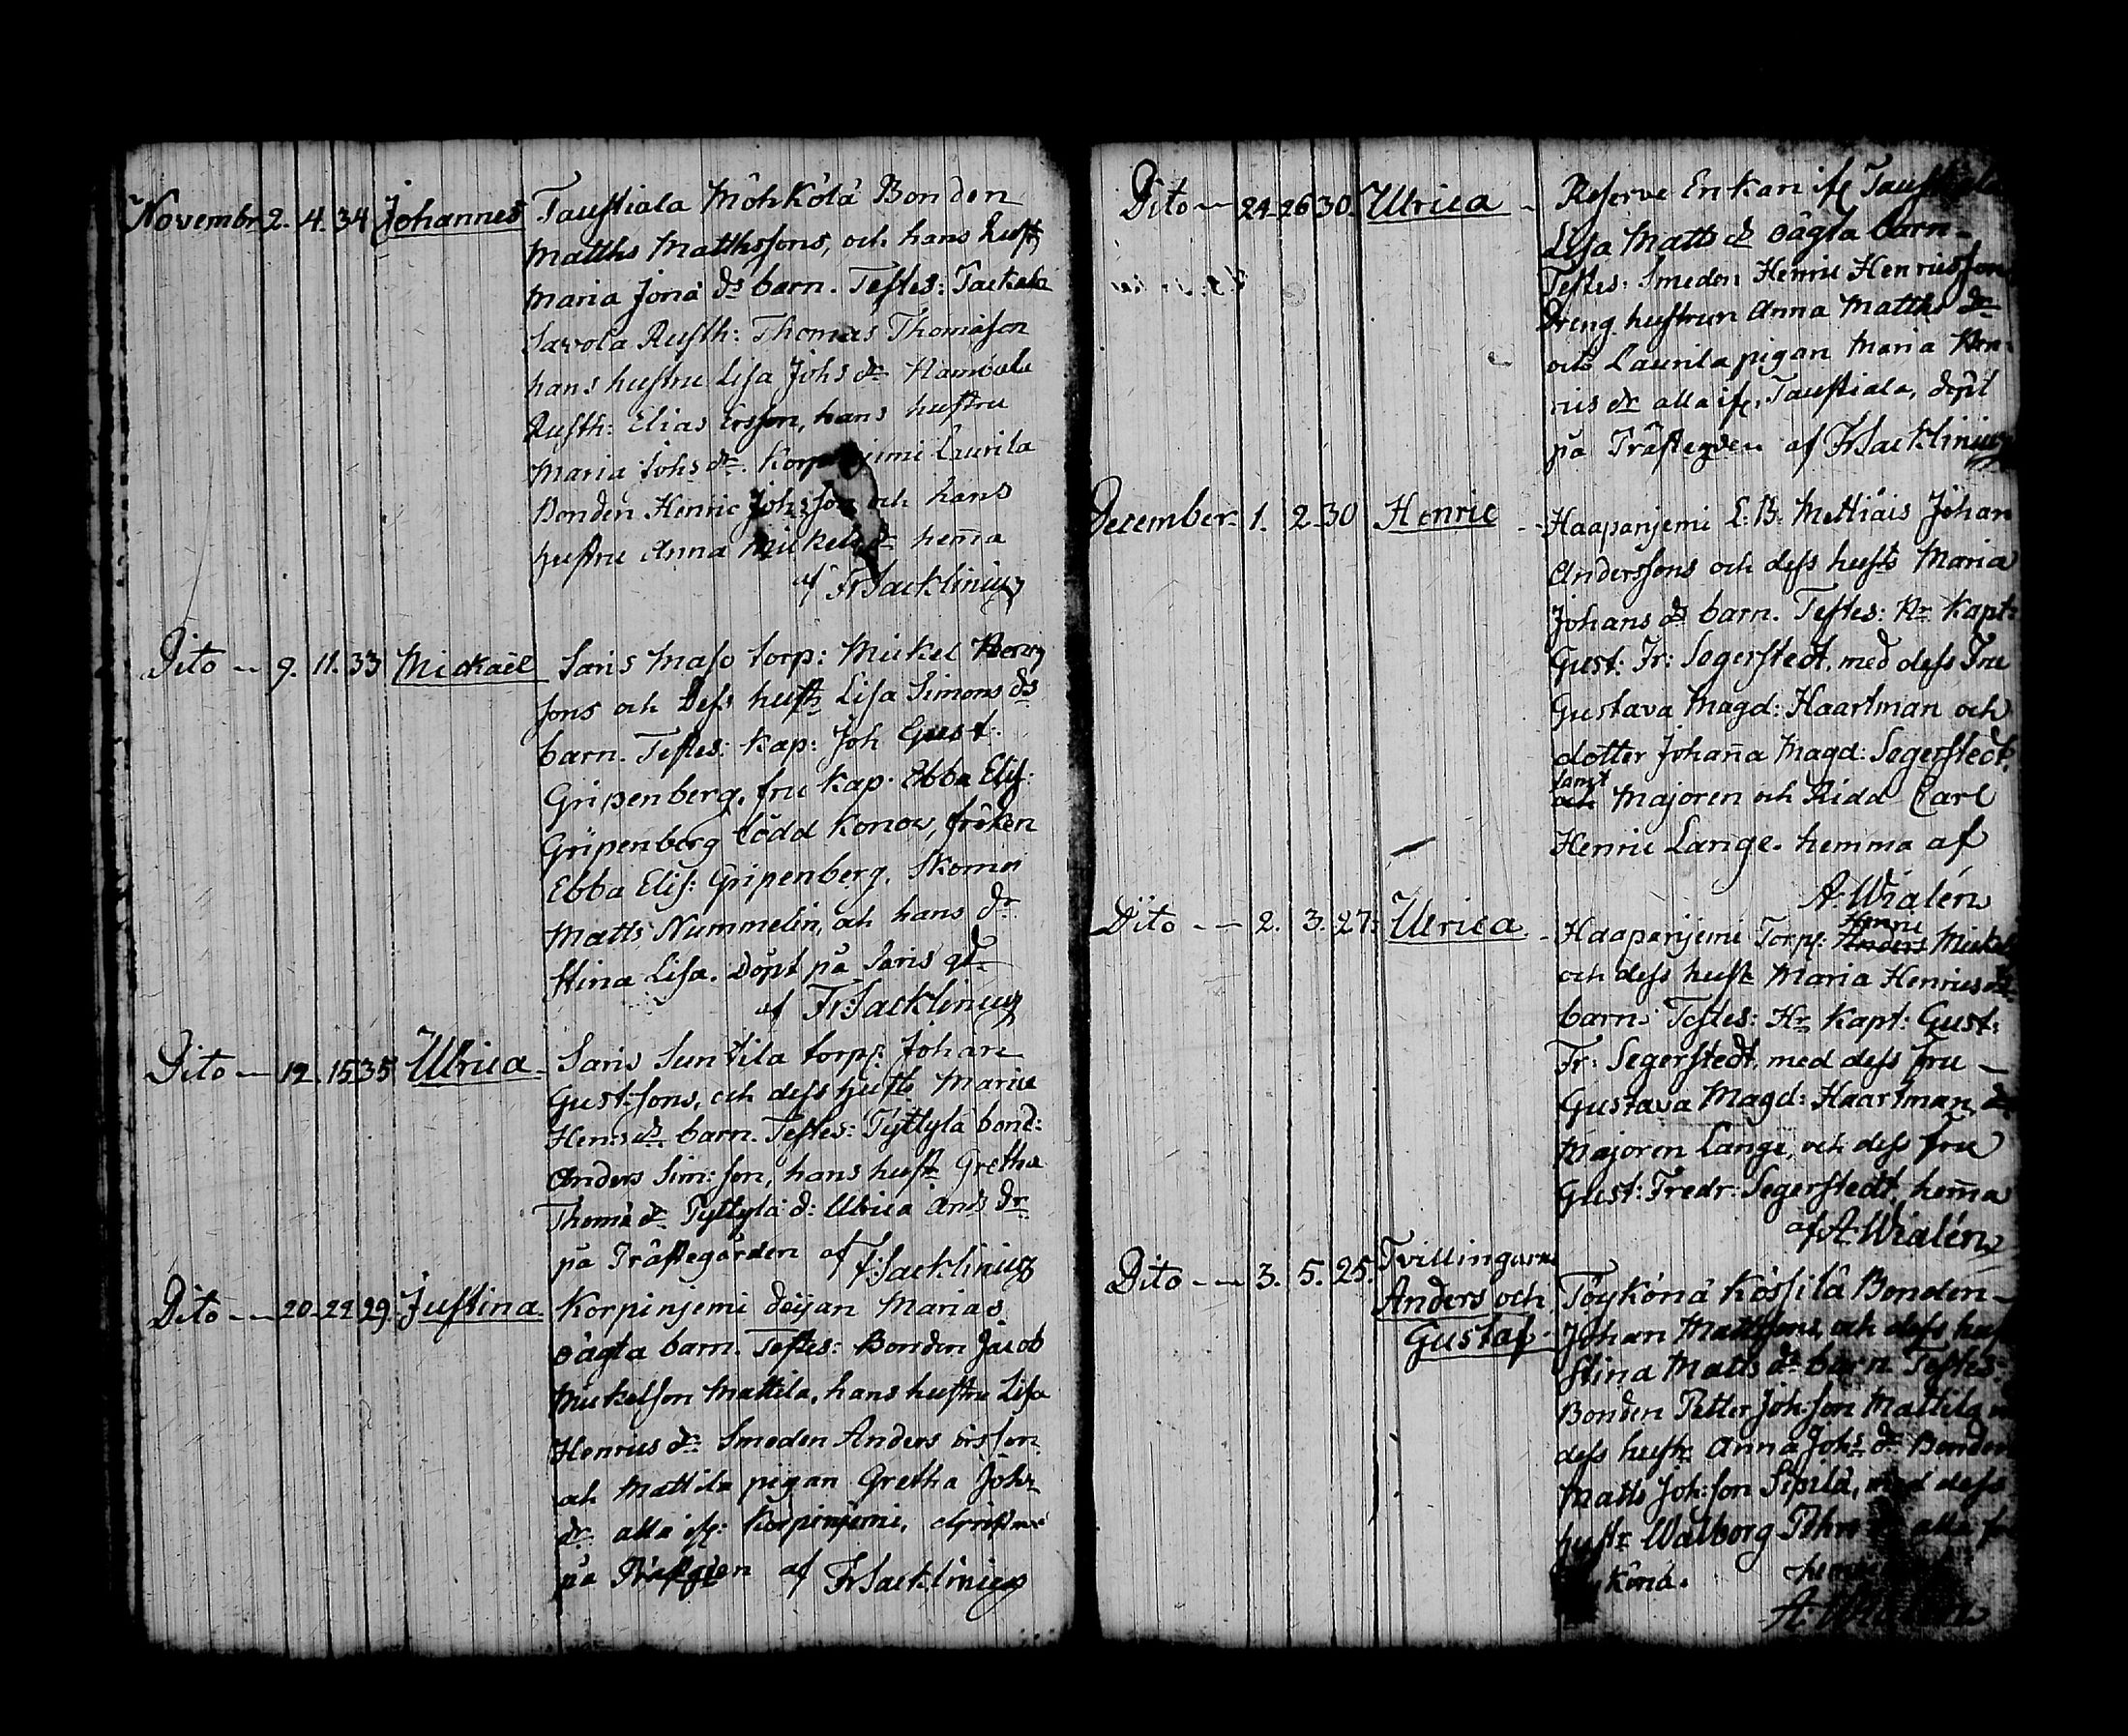 Novembr 2. 4. 34 Johannes Taustiala Möhkölä Bonden
Matths Matthssons, och hans hust
Maria Jona ds barn. Testes: Tackala
Savola Rusth: Thomas Thomasson
hans hustru Lisa Johs dr
Rusth: Elias Ersson, hans hustru
Maria Johs dr. Laurila
Bonden Henric Johsson och hans
hustru Anna Mickels dr hema
af Fr Sacklinius
Dito -- 9. 11. 33 Mickaël Saris Maso torp: Mickel
sons och Dess hust Lisa Simons ds
barn. Testes: Kap: Joh Gust.
Gripenberg, fru Kap. Ebba Elis:
Gripenberg född Konow, fröken
Ebba Elis: Gripenberg, Skomr
Matts Nummelin, och hans dr
Stina Lisa. Döpt på Saris gd
af Fr: Sacklinius
Dito -- 12. 15 35 Ulrica Saris Suntila torp: Johan
Gust: sons, och dess hust Maria
Hens ds barn. Testes: Tyttylä bond:
Anders Sim: son, hans hust Gretha
Thoma dr Tyttylä d: Ulrica Ands dr
på Prästegården af F Sacklinius
Dito -- 20. 22 29. Justina Korpinjemi deijan Marias
oägta barn. Testes: Bonden Jacob
Mickelson Mattila, hans hustru Lisa
Henrics dr Smeden Anders Ersson
och Mattila pigan Gretha Johs
dr alla if: Korpinjemi,
på af Fr Sacklinius
Dito -- 24. 26 30. Ulrica Reserve Enkan if Taustiala
Lisa Matts ds oägta barn.
Testes: Smeden Henric Henricsson
Dreng hustrun Anna Matths dr
och Laurila pigan Maria Hen-
rics dr alla if. Taustiala, döpt
på Prästegden af Fr Sacklinius
December. 1. 2. 30 Henric Haapanjemi L: B. Mattiais Johan
Anderssons och dess husts Maria
Johans ds barn. Testes: Hr Kapt:
Gust: Fr: Segerstedt, med dess Fru
Gustava Magd: Haartman och
dotter Johana Magd: Segerstedt,
samt
och Majoren och Ridd Carl
Henric Lange. hemma af
A. Wialén
Dito -- 2. 3. 27. Ulrica Haapanjemi Torp: Anders Mickels
Henric
och dess hust Maria Henrics ds
barn. Testes: Hr Kapt: Gust:
Fr: Segerstedt, med dess fru
Gustava Magd: Haartman,
Majoren Lange, och dess fru
Gust: Fredr: Segerstedt, hema
af A. Wialén
Dito -- 3. 5. 25. Tvillingarne
Anders och
Gustaf. Töykönä Kössilä Bonden
Johan Mattssons, och dess
Stina Matts ds barn Testes:
Bonden Petter Joh: son Mattila
dess hustr Anna Johs dr Bonden
Matts Joh: son Sipilä, med dess
hustr Walborg alla
A. Wialén